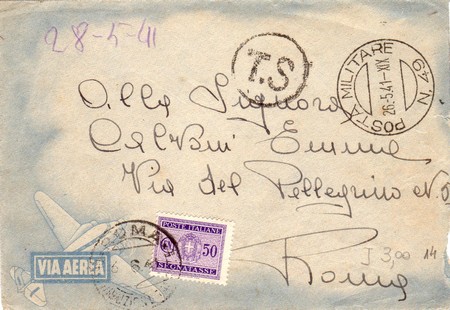 28-5-41
T.S
POSTA MILITARE N.49
26.5.41-XIX
Alla Signora
Calvini Emma
Via del Pellegrino N.
Roma
3,00
14
ROMA
POSTE ITALIANE
50
SEGNATASSE
VIA AEREA